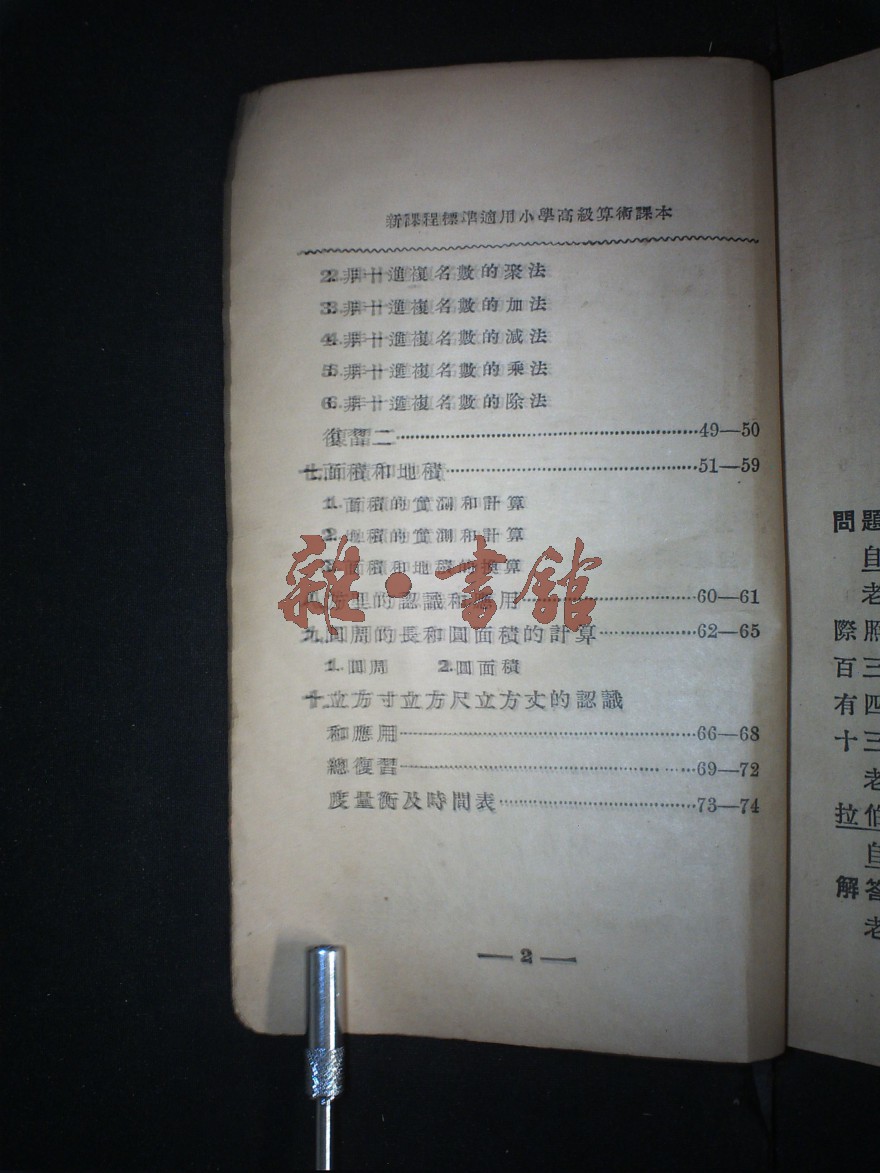 新課程標準適用小學高級算術課本
2. 非十進複名數的聚法
3. 非十進複名數的加法
4. 非十進複名數的減法
5. 非十進複名數的乘法
6. 非十進複名數的除法
復習二……49—50
七.面積和地積……51—59
1. 面積的實測和計算
2. 地積的實測和計算
3. 面積和地積的換算
八.方里的認識和應用……60—61
九.圓周的長和圓面積的計算……62—65
1. 圓周 2. 圓面積
十.立方寸立方尺立方丈的認識
和應用……66—68
總復習……69—72
度量衡及時間表……73—74
— 2 —
雜·書館
問題
自
老
際照
百三
有四
十三
老
拉伯
自
解答
老